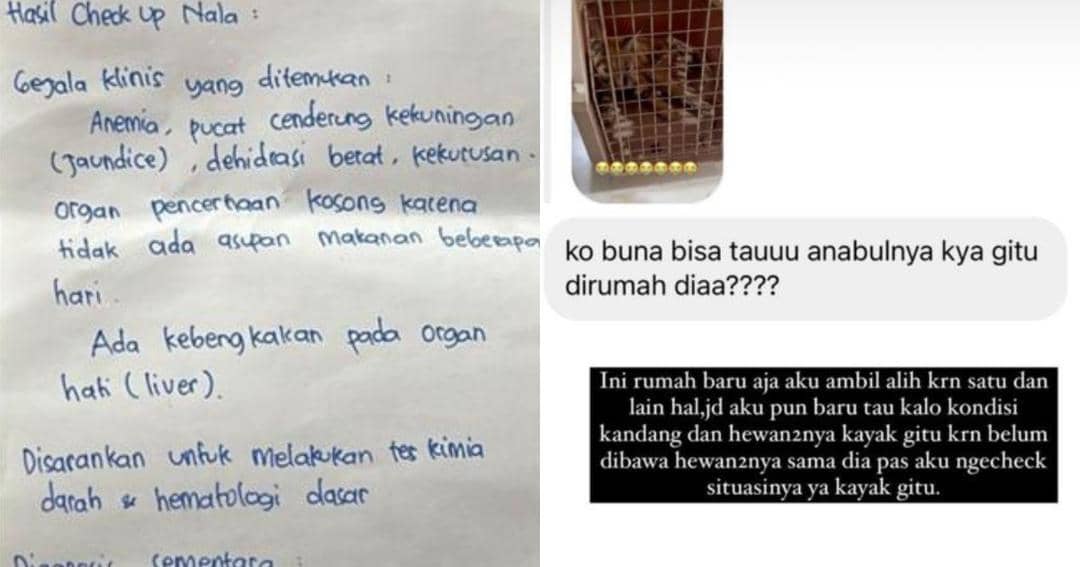 Hasil Check Up Nala :
Gejala klinis yang ditemukan :
Anemia, pucat cenderung kekuningan
(Jaundice), dehidrasi berat, kekurusan.
organ pencernaan kosong karena
tidak ada asupan makanan beberapa
hari.
Ada kebengkakan pada organ
hati (liver).
Disarankan untuk melakukan tes kimia
darah & hematologi dasar
Diagnosis sementara :
😭😭😭😭😭😭😭
ko buna bisa tauuu anabulnya kya gitu
dirumah diaa????
Ini rumah baru aja aku ambil alih krn satu dan
lain hal,jd aku pun baru tau kalo kondisi
kandang dan hewan2nya kayak gitu krn belum
dibawa hewan2nya sama dia pas aku ngecheck
situasinya ya kayak gitu.